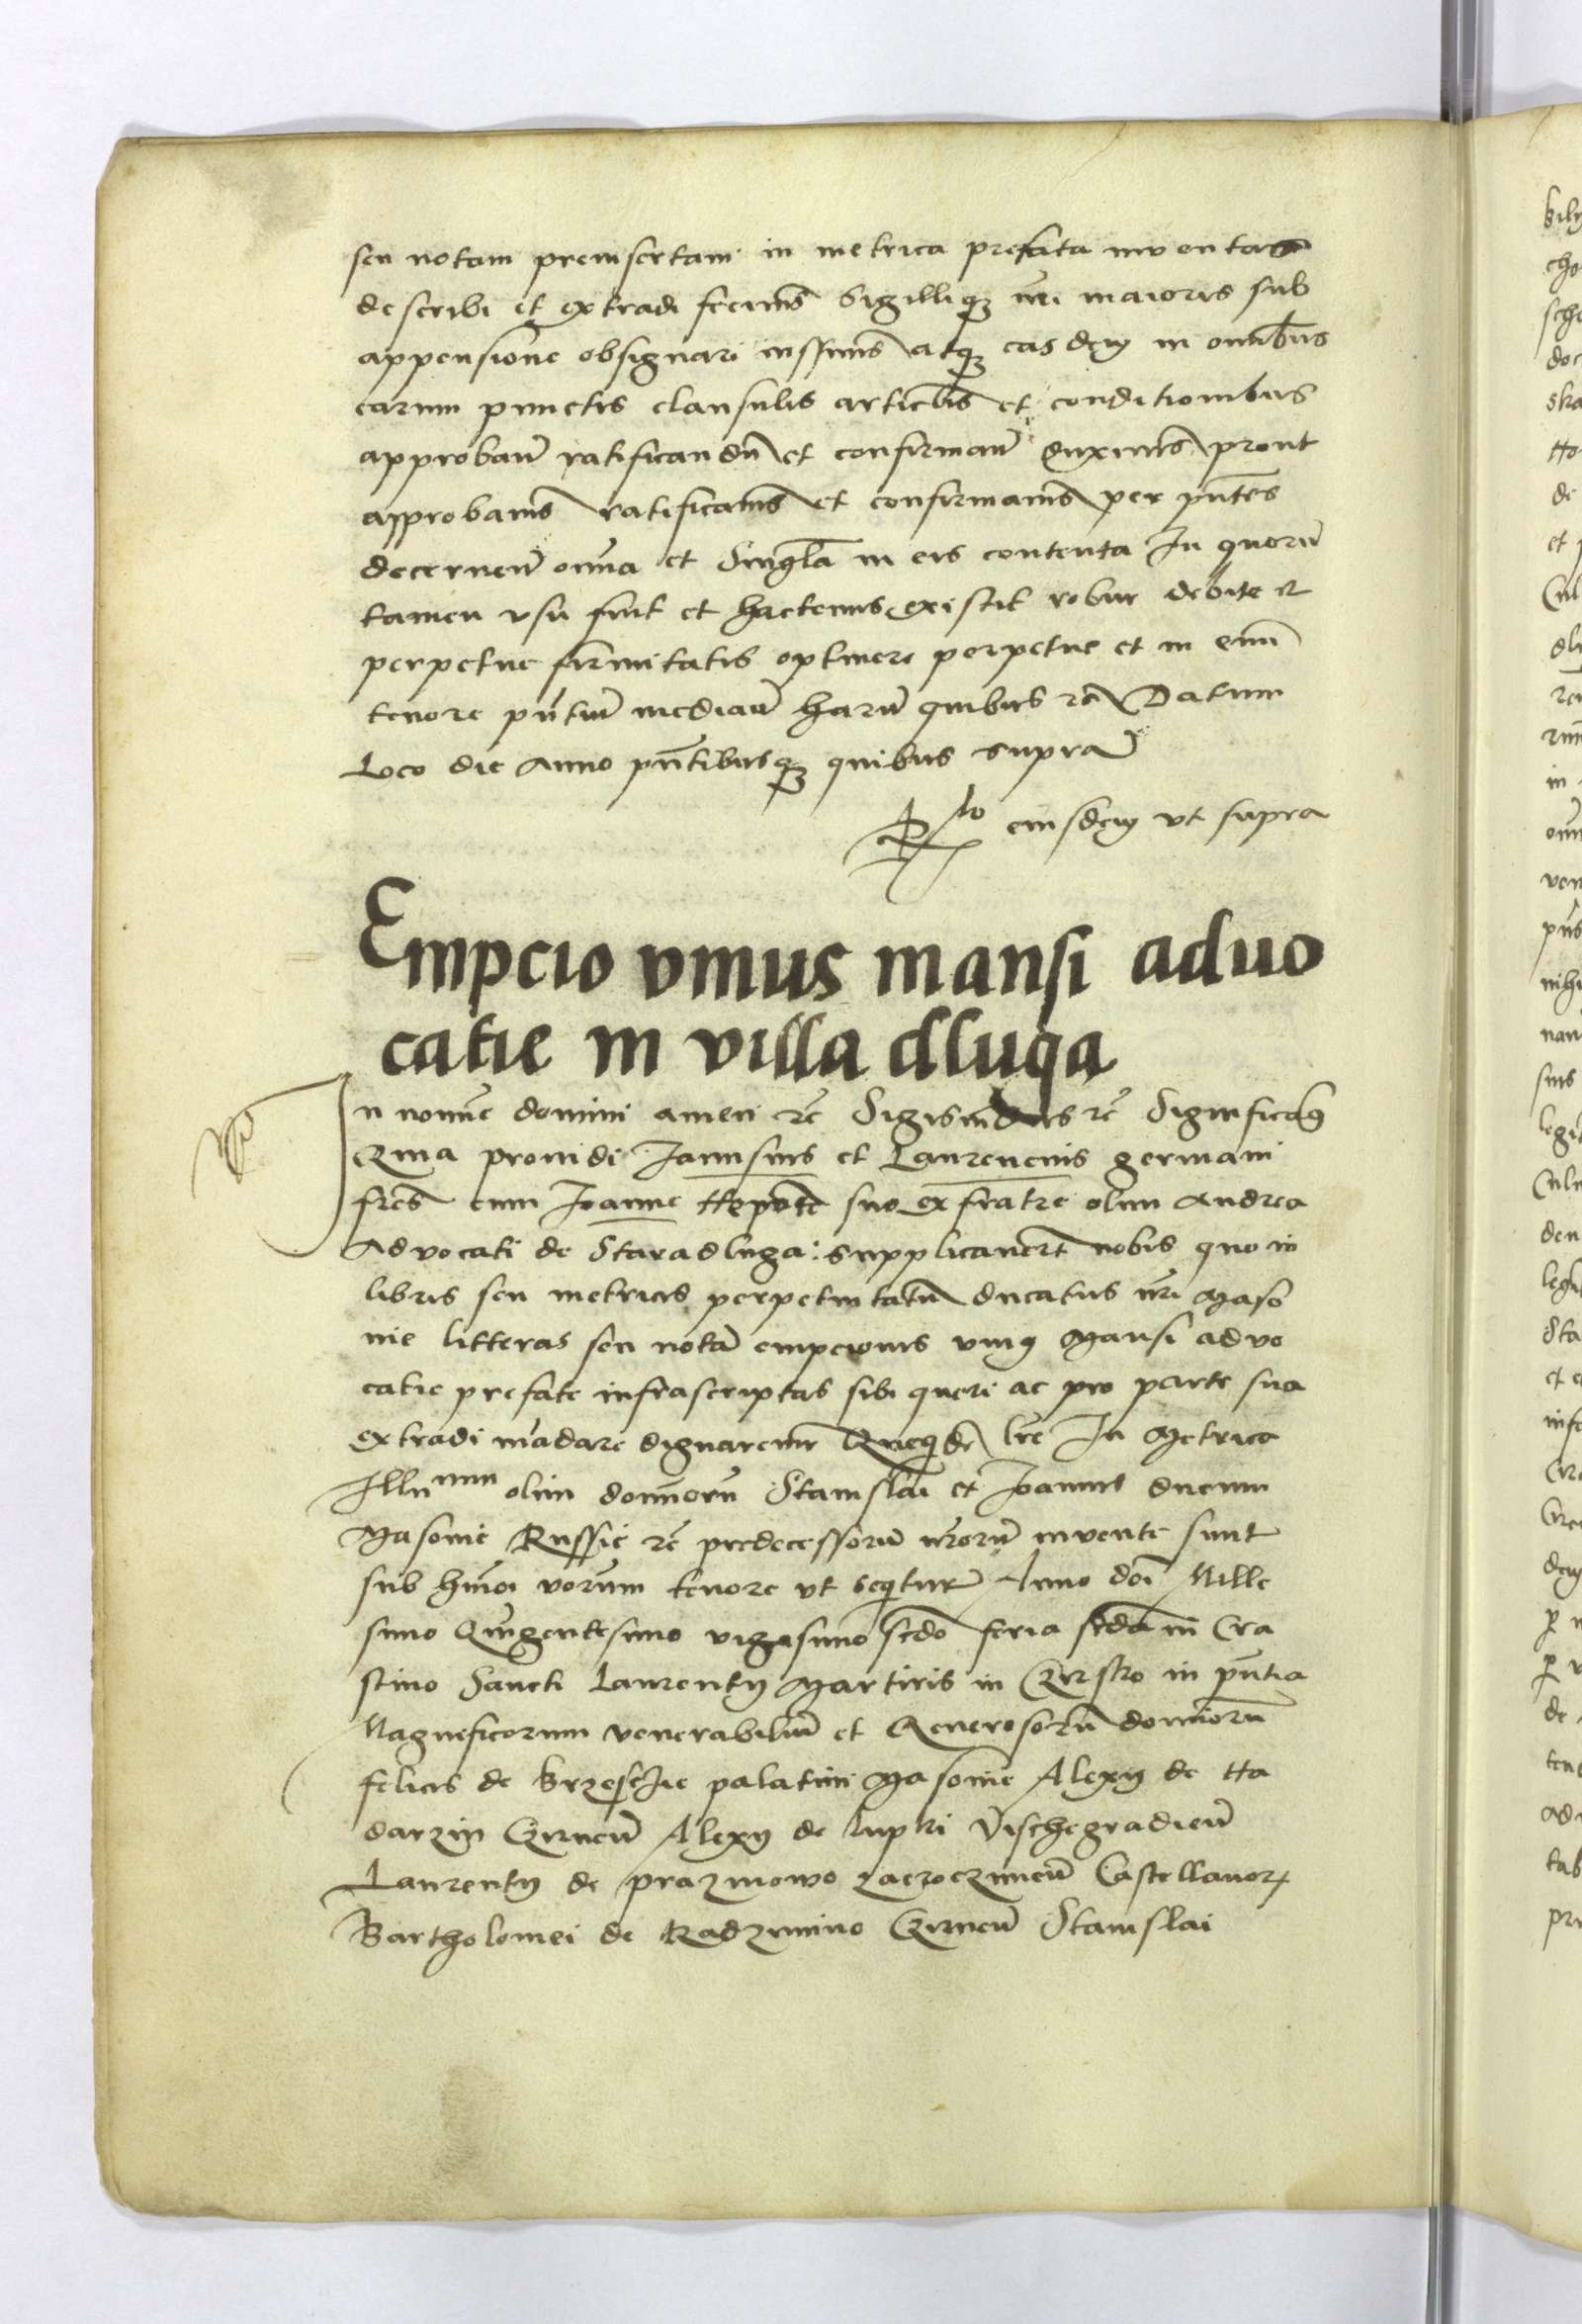 seu notam preinsertam in metrica prefata inventas
describi et extradi fecimꝰ Sigilliqꝫ nri maioris sub
appensione obsignari iussimꝰ atqꝫ easdem in omībus
earum punctis clausulis articlis et conditionibus
approband ratificandū et confirmand duximꝰ prout
approbamꝰ ratificamꝰ et confirmamꝰ per pn̄tes
decernen om̄ia et Singl̄a in eis contenta In quorū
tamen vsu sint et hactenus existit robur debite et
perpetue firmitatis optinere perpetue et in evū
tenore pn̄tiū mediañ harū quibus rc̄ Datum
Loco die Anno pn̄tibusqꝫ quibus supra
Rlo eiusdem vt supra
Empcio vnius mansi aduo
catie in villa dluga
In nomīe domini amen rc̄ Sigismūdus rc̄ Significamꝰ
Quia prouidi Jannsius et Laurencius germani
fr̄es cum Joanne Nepōte suo ex fratre olim Andrea
Advocati de Staradluga: supplicauert nobis quo in
libris seu metricis perpetuitatū ducatus nri Maso
uie litteras seu notā empcionis vniꝰ Mansi advo
catie prefate infrascriptas sibi queri ac pro parte sua
extradi mādare dignaremur Quequidē lr̄e In Metrica
Illu mm olim dominorū Stanislai et Joannis ducum
Masouie Russie rc̄ predecessorū nr̄orū invente sunt
sub hmōi verum tenore vt sequitur Anno doī Mille
simo Quīngentesimo vigesimo scdo feria scda in Cra
stino Sancti Laurentÿ Martiris in Czirsko in pn̄tia
Magnificorum venerabiliū et Generosorū dominorū
felicis de Brzesche palatini Masouie Alexÿ de Na
darzin Czirnen̄ Alexÿ de lupki Vischegradien̄
Laurentÿ de prazmowo zacroczimen̄ Castellanorꝫ
Bartholomei de Radzimino Czirnen̄ Stanislai